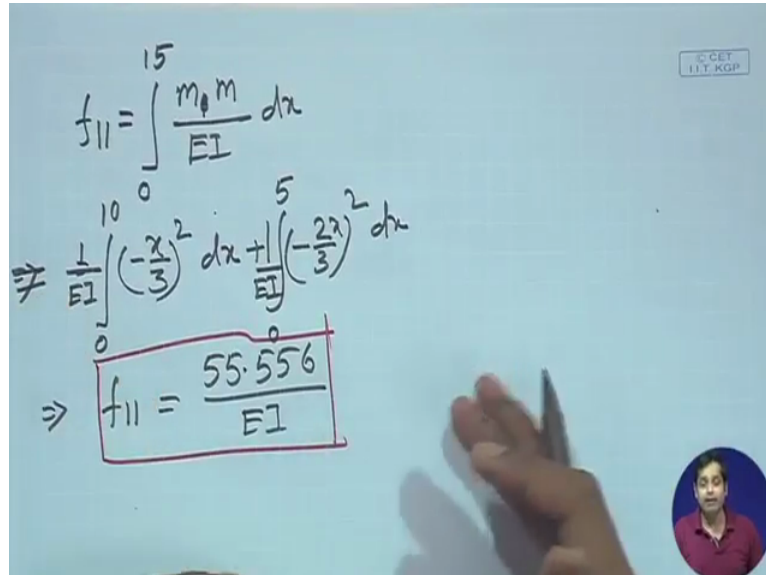 © CET
I.I.T. KGP
f₁₁ = ∫₀¹⁵ m₁m/EI dx
⇒ 1/EI ∫₀¹⁰ (-x/3)² dx + 1/EI ∫₀⁵ (-2x/3)² dx
⇒ f₁₁ = 55.556/EI